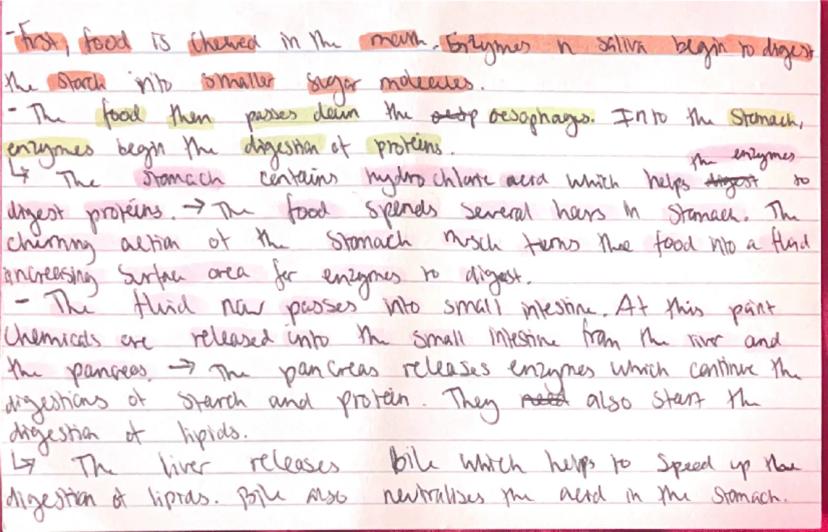 - First, food is chewed in the mouth. Enzymes in saliva begin to digest
the starch into smaller sugar molecules.
- The food then passes down the oesophagus. Into the stomach,
enzymes begin the digestion of proteins.
the enzymes
↳ The stomach contains hydrochloric acid which helps digest to
digest proteins. → The food spends several hours in stomach. The
churning action of the stomach muscle turns the food into a fluid
increasing surface area for enzymes to digest.
- The fluid now passes into small intestine. At this point
chemicals are released into the small intestine from the liver and
the pancreas. → The pancreas releases enzymes which continue the
digestions of starch and protein. They need also start the
digestion of lipids.
↳ The liver releases bile which helps to speed up the
digestion of lipids. Bile also neutralises the acid in the stomach.